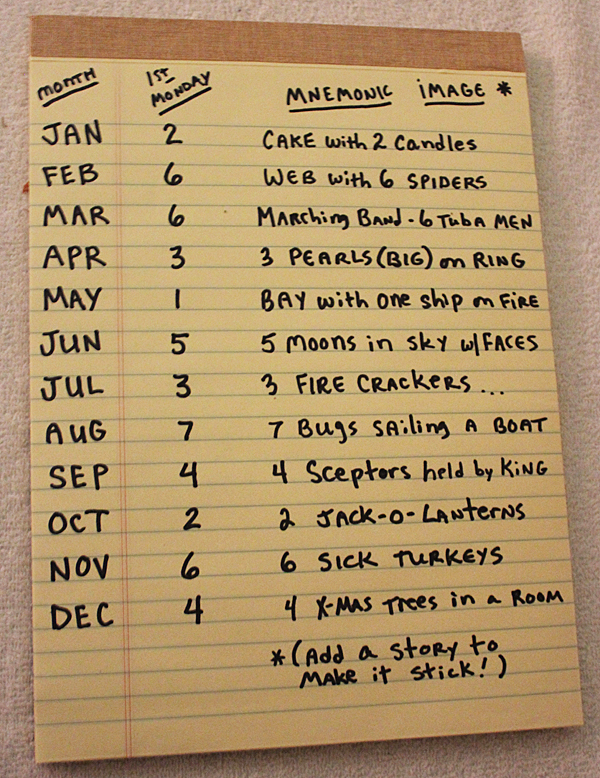 MONTH 1ST MONDAY MNEMONIC IMAGE *
JAN 2 CAKE with 2 Candles
FEB 6 WEB with 6 SPIDERS
MAR 6 MARching Band - 6 Tuba MEN
APR 3 3 PEARLS (BIG) on RING
MAY 1 BAY with one ship on FIRE
JUN 5 5 Moons in sky w/FACES
JUL 3 3 FIRE CRACKERS ...
AUG 7 7 Bugs SAiling A BOAT
SEP 4 4 Sceptors held by KiNG
OCT 2 2 JACK-O-LANterns
NOV 6 6 SICK TURKEYS
DEC 4 4 X-MAS TREES in a ROOM
* (Add a STORY to
MAKE it STICK!)